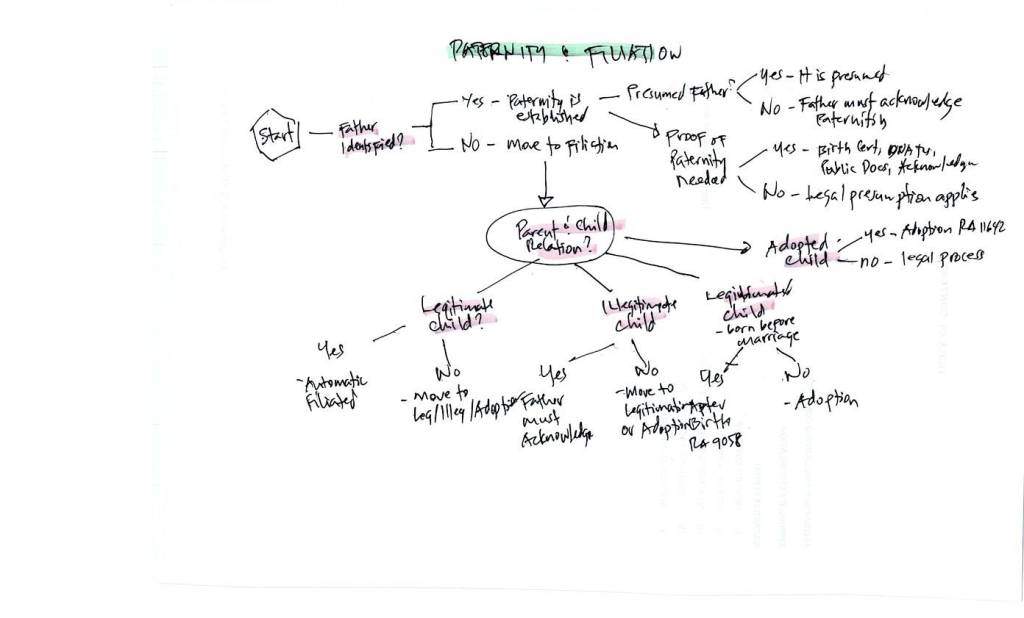 PATERNITY & FILIATION
Start
Father
Identified?
Yes - Paternity is
established
NO - Move to Filiation
Presumed Father?
Yes - It is presumed
NO - Father must acknowledge
Paternity
Proof of
Paternity
Needed
Yes - Birth Cert, DNA
Public Docs, Acknowledge
No - Legal presumption applies
Parent & Child
Relation?
Adopted
child
yes - Adoption RA 11642
no - legal process
Legitimate
child?
Yes
- Automatic
Filiated
No
- Move to
Leg/Illeg/Adoption
Illegitimate
child
Yes
Father
must
Acknowledge
No
- Move to
or Adoption
child
- born before
marriage
Yes
After
Birth
RA 9058
No
- Adoption